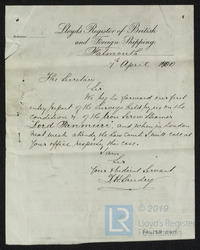 Lloyds Register of British
and Foreign Shipping.
Falmouth
April 1900
The Secretary
Sir
We beg to forward our first
entry report of the surveys held by us on the
condition of the Iron Screw Steamer
"Lord Penrhyn" and when in London
next week attend the Law Court I will call at
your office respecting this case.
I am
Sir
Your obedient Servant
©2019